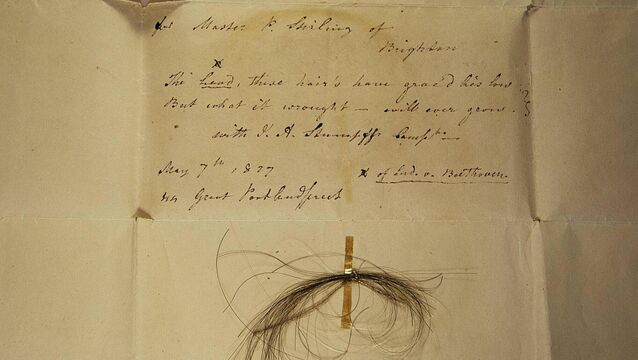 for Master P. Stirling of
Brighton
The head, these hair's have grac'd lies low
But what it wrought – will ever grow.
with J. A. Stumpff's Compts
May 7th 1827
x of Lud. v. Beethoven.
44 Great Portland Street